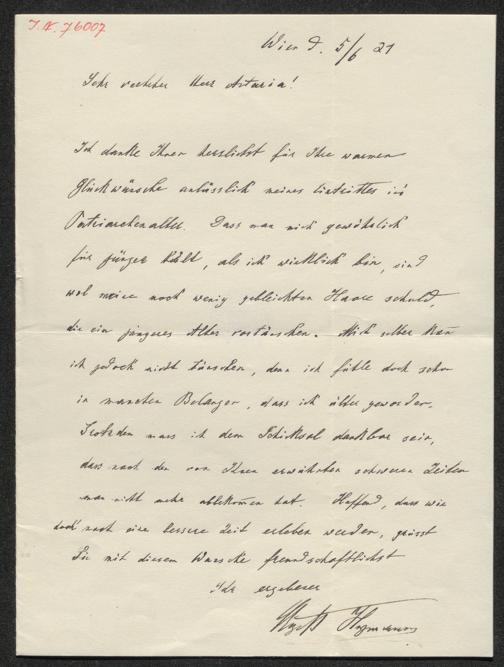 J.N. 76007
Wien d. 5/6 21
Sehr verehrter Herr Artaria!
Ich danke Ihnen herzlichst für Ihre warmen
Glückwünsche anlässlich meines Eintrittes in's
Patriarchenalter. Dass man mich gewöhnlich
für jünger hält, als ich wirklich bin, sind
wol meine noch wenig gebleichten Haare schuld,
die ein jüngeres Alter vortäuschen. Mich selber kann
ich jedoch nicht täuschen, denn ich fühle doch schon
in manchen Belangen, dass ich älter geworden.
Trotzdem muss ich dem Schiksal dankbar sein,
dass nach den von Ihnen erwähnten schweren Zeiten
man nicht mehr abbekommen hat. Hoffend, dass wir
doch noch eine bessere Zeit erleben werden, grüsst
Sie mit diesem Wunsche freundschaftlichst
Ihr ergebener